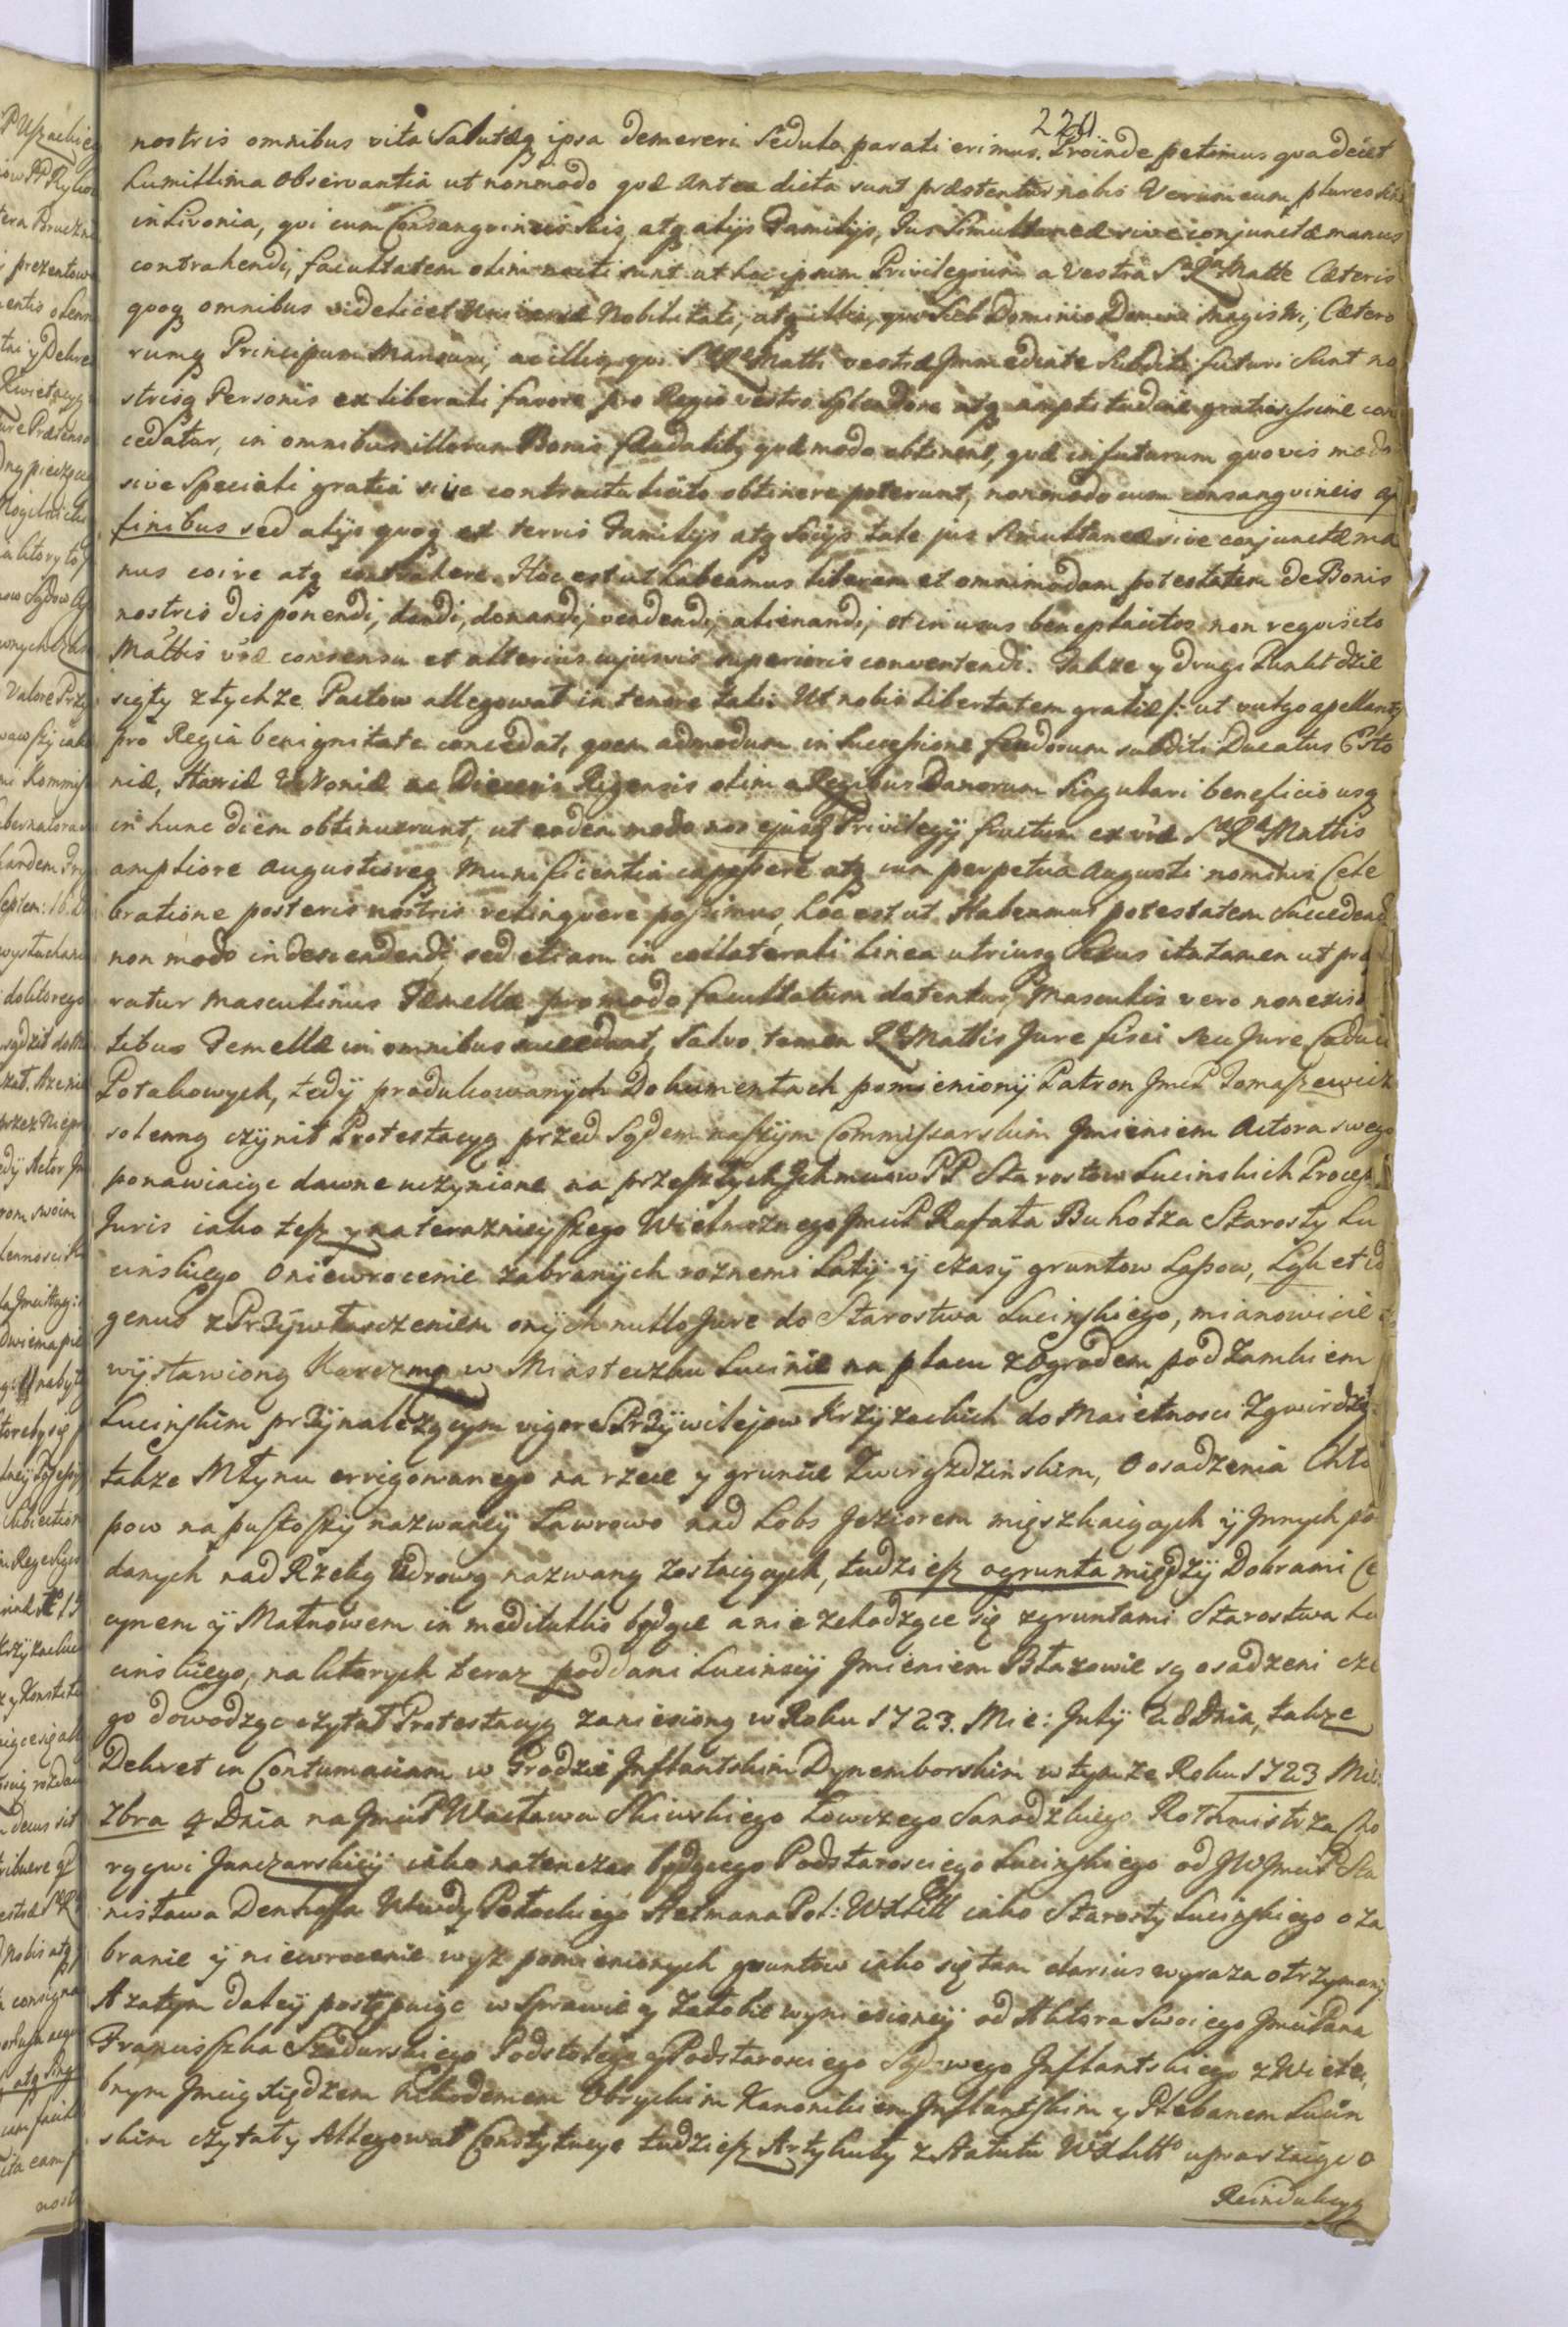 220
nostris omnibus vita Saluteq ipsa demereri Sedulo parati erimus. Proinde petimus qva decet
humillima Observantia ut nonmodo qvæ Antea dicta sunt præstentur nobis Verum cum plures
in Livonia, qvi cum Consangvineis suis, atq alijs Familijs, Jus Simultaneæ sive conjunctæ manus
contrahendi, facultatem olim nacti sunt ut hoc ipsum Privilegium a Vestra S R Matte Cæteris
qvoq omnibus videlicet Universæ Nobilitati, atq illis, qvi sub Dominio Domini Magistri, Cætero
rumq Principum Mansuri, ac illis, qvi S R Matti vestræ Immediate Subditi futuri Sunt no
strisq Personis ex liberali favore pro Regio vestro Splendore atq amplitudine gratiosissime con
cedatur, in omnibus illorum Bonis feudalibq qvæ modo obtinent, qvæ in futurum qvovis modo
sive Speciali gratia sive contractu licito obtinere poterunt, non modo cum consangvineis af
finibus sed alijs qvoq ex terris Familijs atq Socijs tale jus Simultaneæ sive conjunctæ ma
nus coire atq contrahere. Hoc est ut habeamus liberam et omnimodam potestatem de Bonis
nostris disponendi, dandi, donandi, vendendi, alienandi, et in usus beneplacitos non reqvisito
Mattis vræ consensu et alterius cujusvis superioris convertendi. Takze y drugi Punkt dzie
siąty z tychze Pactow allegował in tenore tali: Ut nobis libertatem gratiæ /: ut vulgo apellant
pro Regia benignitate concedat, qvem admodum in Successione feudorum subditi Ducatus Esto
niæ, Harriæ Wironiæ ac Diecesis Rigensis olim a Regibus Danorum Singulari beneficio usq
in hunc diem obtinuerunt, ut eodem modo nos ejusq Privilegij fructum ex vræ S R Mattis
ampliore augustioreq Munificentia capessere atq cum perpetua Augusti nominis Cele
bratione posteris nostris relinqvere possimus, hoc est ut Habeamus potestatem Succedendi
non modo in descendenti, sed etiam in collaterali linea utriusq Sexus ita tamen ut præ
ratur masculinus Femellæ pro modo facultatum dotentur, Masculis vero non exis
tibus Femellæ in omnibus succedant, Salvo tamen R Mattis Jure fisci seu Jure Caduci
Potakowych, tedÿ produkowanych Dokumentach pomienionÿ Patron JmP Tomaszewicz
solenną czÿnił Protestacyą przed Sądem naszÿm Commissarskim Jmieniem Actora swego
ponawiaiąc dawne uczÿnione na przeszłych Jchmciow PP Starostow Lucinskich Process
Juris iako tesz y na teraznieyszego Wielmoznego JmciP Rafała Bukołza Starosty Lu
cinskiego o niewrocenie zabranÿch roznemi Latÿ ÿ czasÿ gruntow Lasow, Ląk et id
genus z Przÿwłasczeniem onÿch nullo Jure do Starostwa Lucinskiego, mianowicie
wÿstawioną Karczmą w Miasteczku Lucinie na placu z Ogrodem pod Zamkiem
Lucinskim przÿnalezącym vigore Przÿwilejow Krzÿzackich do Maietnosci Zgwirdz
takze Młynu errigowanego na rzece y gruncie Zwirgzdzinskim, O osadzenia Chło
pow na pustoszÿ nazwaneÿ Lawrowo nad Lobs Jeziorem mięszkaiących ÿ Jnnych po
danych nad Rzeką Udrową nazwaną zostaiących, tudziesz o grunta miedzÿ Dobrami Ce
cynem ÿ Matnowem in meditullio będące a nie zchodzące się z gruntami Starostwa Lu
cinskiego, na ktorych teraz poddani Lucinscÿ Jmieniem Błazowie są osadzeni cze
go dowodząc czytał Protestacyą zaniesioną w Roku 1723. Mie: Julÿ 28 Dnia, takze
Dekret in Contumaciam w Grodzie Jnflantskim Dynemborskim w tymze Roku 1723 Mie:
Zbra 9 Dnia na JmciP Wacława Skiwskiego Łowczego Sanodzkiego Rothmistrza Cho
rągwi Janczarskieÿ iako natenczas będącego Podstarosciego Lucinskiego od JWJmciP Sta
nisława Denhoffa Wwdy Połockiego Hetmana Pol: WXLitt iako Starostÿ Lucinskiego o za
branie ÿ niewrocenie wyz pomienionych gruntow iako się tam clarius wyraza otrzymanÿ
A zatym daleÿ postępuiąc w Sprawie y Załobie wyniesioneÿ od Aktora Swoiego JmciPana
Franciszka Szadurskiego Podstolego y Podstarosciego Sądowego Jnflantskiego z Wiele
bnym Jmcią Xiędzem Nikodemem Obryckim Kanonikiem Jnflantskim y Plebanem Lucin
skim czytał y Allegował Constytucye tudziesz Artykuły z Statutu WXLitto upraszaiąc o
Reindukcyą